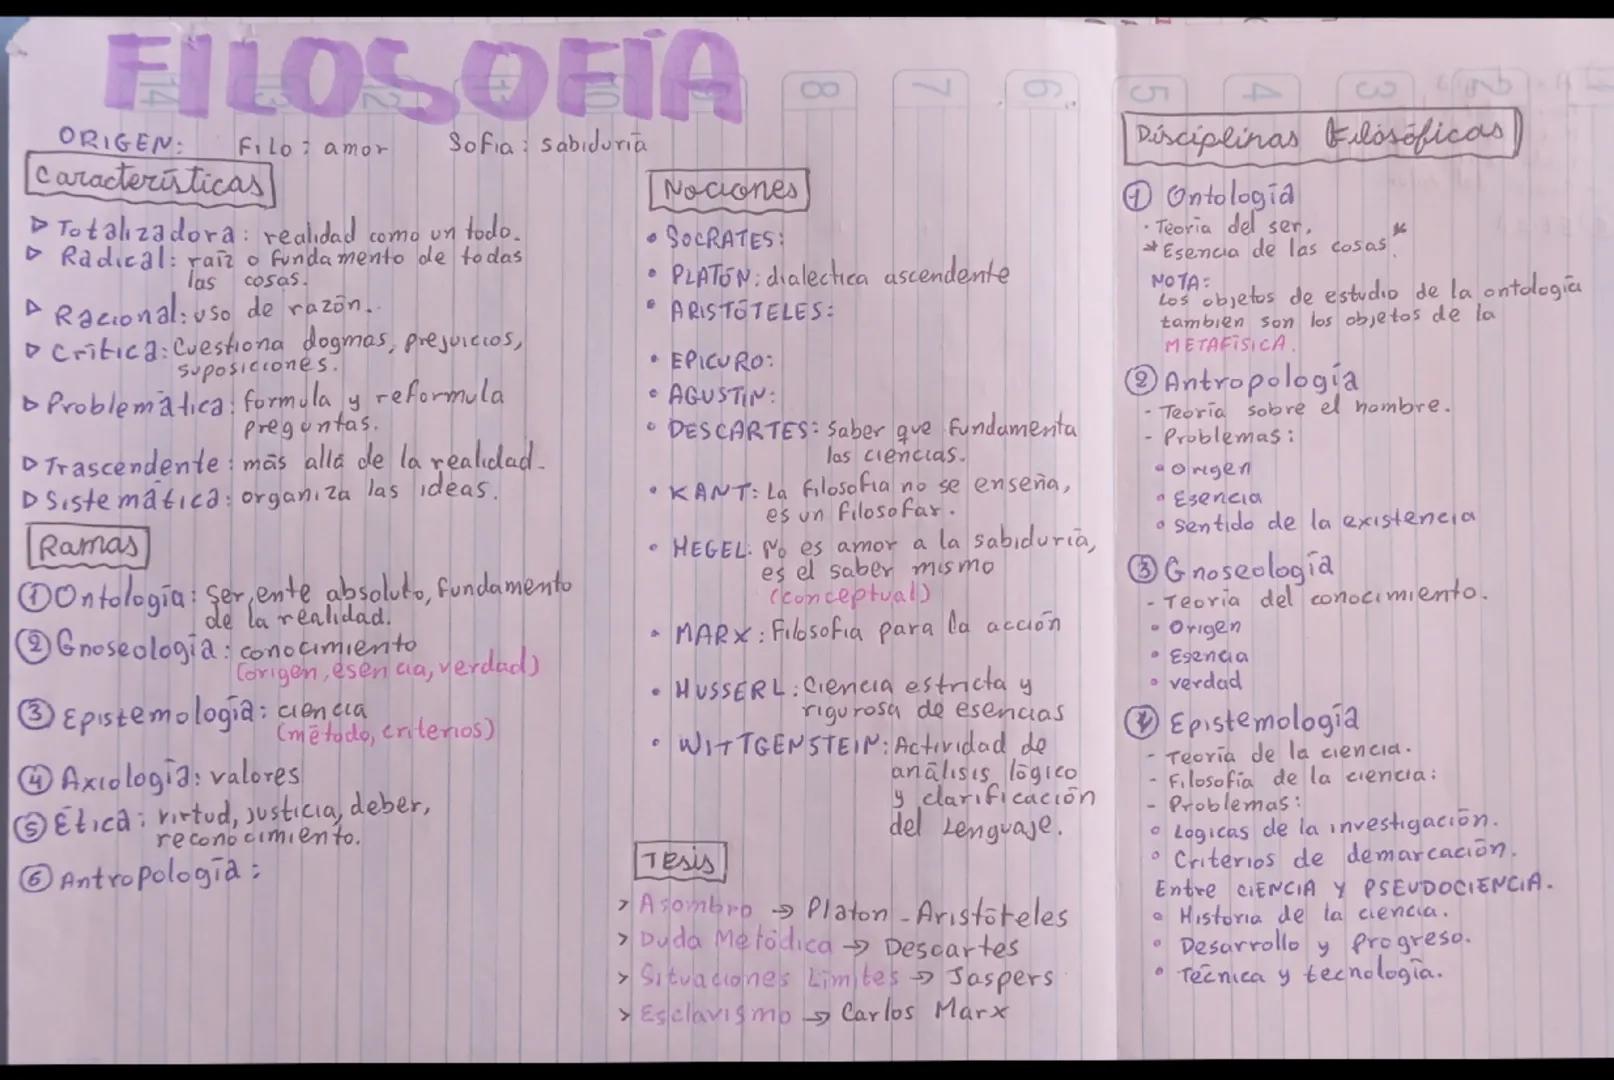 FILOSOFÍA
ORIGEN: Filo: amor Sofia: sabiduría
Características
▷ Totalizadora: realidad como un todo.
▷ Radical: raíz o fundamento de todas
las cosas.
▷ Racional: uso de razón.
▷ Crítica: Cuestiona dogmas, prejuicios,
suposiciones.
▷ Problemática: formula y reformula
preguntas.
▷ Trascendente: más allá de la realidad.
▷ Sistemática: organiza las ideas.
Ramas
① Ontología: Ser, ente absoluto, fundamento
de la realidad.
② Gnoseología: conocimiento
(origen, esencia, verdad)
③ Epistemología: ciencia
(método, criterios)
④ Axiología: valores
⑤ Ética: virtud, justicia, deber,
reconocimiento.
⑥ Antropología:
Nociones
• SOCRATES:
• PLATÓN: dialectica ascendente
• ARISTÓTELES:
• EPICURO:
• AGUSTÍN:
• DESCARTES: Saber que fundamenta
las ciencias.
• KANT: La filosofia no se enseña,
es un filosofar.
• HEGEL: No es amor a la sabiduría,
es el saber mismo
(conceptual)
• MARX: Filosofia para la acción
• HUSSERL: Ciencia estricta y
rigurosa de esencias
• WITTGENSTEIN: Actividad de
análisis lógico
y clarificación
del Lenguaje.
Tesis
> Asombro → Platon - Aristóteles
> Duda Metódica → Descartes
> Situaciones Límites → Jaspers
> Esclavismo → Carlos Marx
8 7 6 5 4 3
Disciplinas Filosóficas
① Ontología
· Teoría del ser.
* Esencia de las cosas *
NOTA:
Los objetos de estudio de la ontología
tambien son los objetos de la
METAFÍSICA.
② Antropología
- Teoría sobre el hombre.
- Problemas:
• Origen
• Esencia
• Sentido de la existencia
③ Gnoseología
- Teoría del conocimiento.
• Origen
• Esencia
• verdad
④ Epistemología
- Teoría de la ciencia.
- Filosofía de la ciencia:
- Problemas:
• Logicas de la investigación.
• Criterios de demarcación.
Entre CIENCIA Y PSEUDOCIENCIA.
• Historia de la ciencia.
• Desarrollo y progreso.
• Técnica y tecnología.